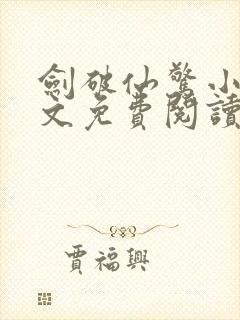 劍破仙驚小
文免費閱讀
賈福興